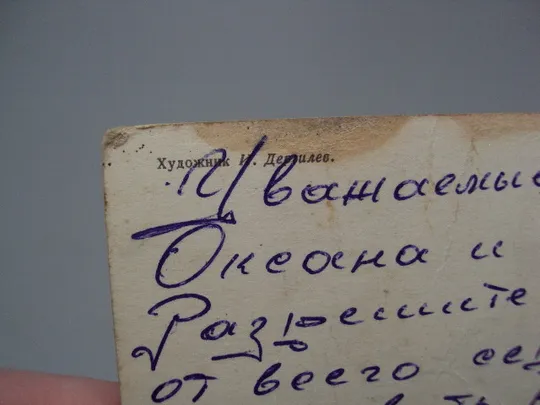 Художник И. Дергилев.
Уважаемые
Оксана и
Разрешите
от всего се